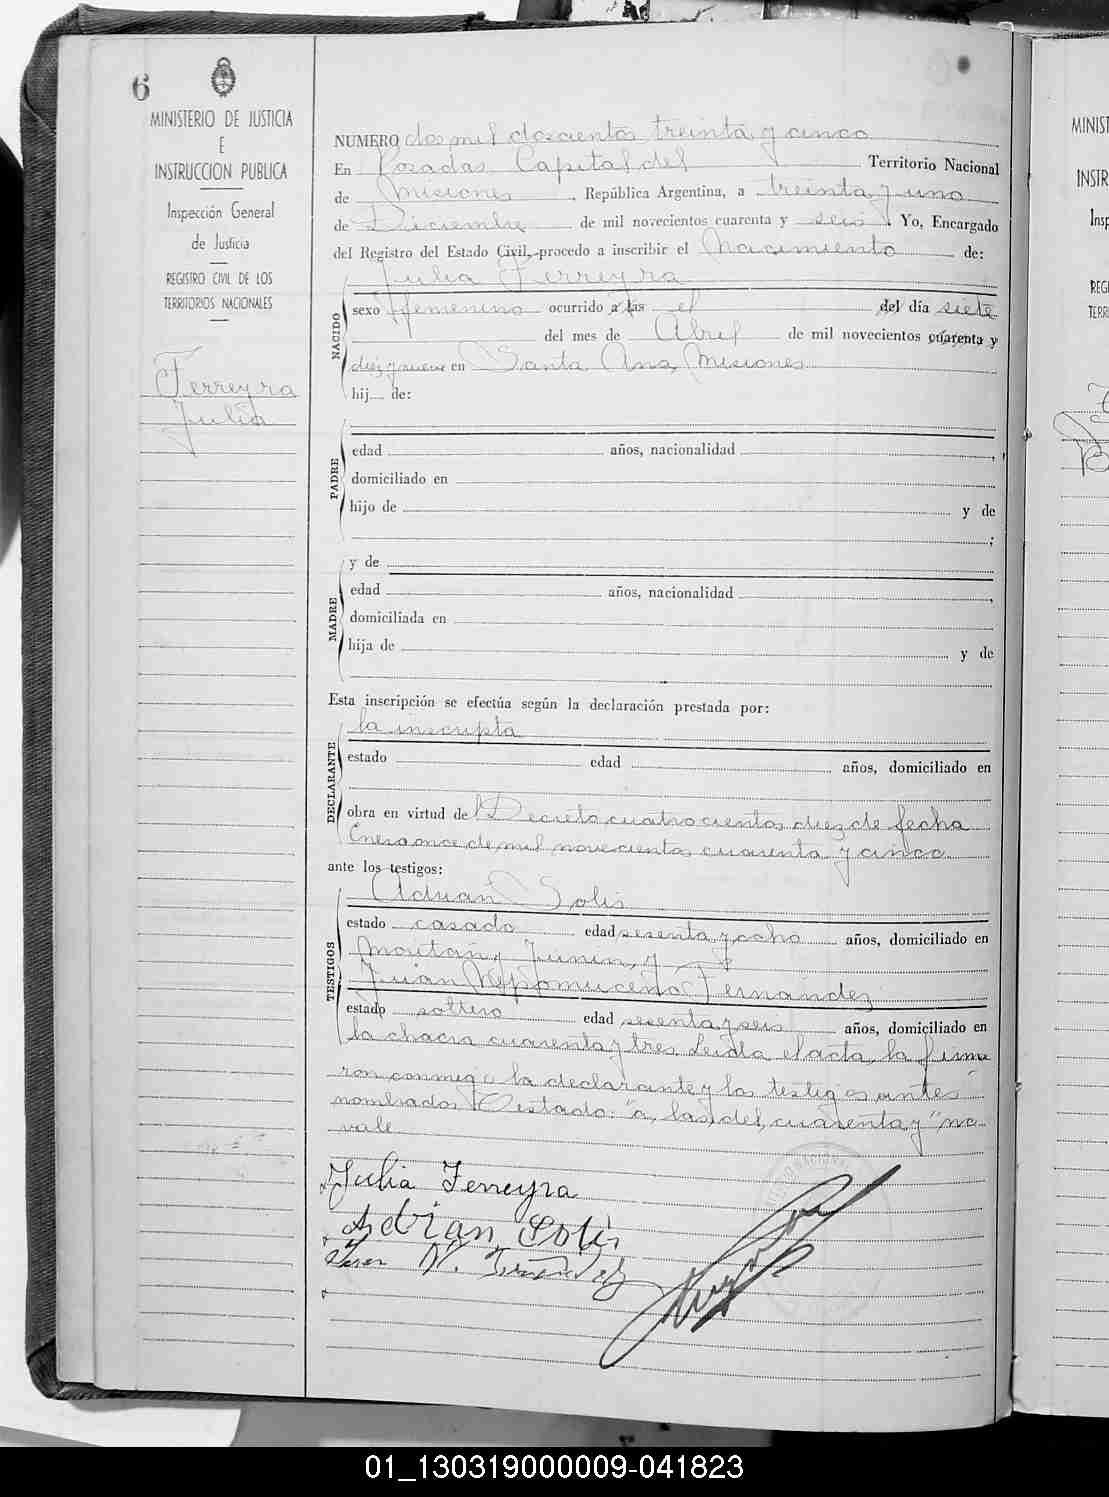 6
MINISTERIO DE JUSTICIA
E
INSTRUCCION PUBLICA
Inspección General
de Justicia
REGISTRO CIVIL DE LOS
TERRITORIOS NACIONALES
Ferreyra
Julia
NUMERO dos mil doscientos treinta y cinco
En Posadas, Capital del Territorio Nacional
de Misiones, República Argentina, a treinta y uno
de Diciembre de mil novecientos cuarenta y seis. Yo, Encargado
del Registro del Estado Civil, procedo a inscribir el Nacimiento de:
NACIDO
Julia Ferreyra
sexo femenino ocurrido a las el del día siete
del mes de Abril de mil novecientos cuarenta y
diez y nueve en Santa Ana, Misiones
hij de:
PADRE
edad años, nacionalidad ,
domiciliado en
hijo de y de
;
MADRE
y de
edad años, nacionalidad ,
domiciliada en
hija de y de
Esta inscripción se efectúa según la declaración prestada por:
DECLARANTE
la inscripta
estado edad años, domiciliado en
obra en virtud del Decreto cuatrocientos diez de fecha
Enero once de mil novecientos cuarenta y cinco
ante los testigos:
TESTIGOS
Adrian Solis
estado casado edad sesenta y ocho años, domiciliado en
Junin, y
Juan Nepomuceno Fernandez
estado soltero edad sesenta y seis años, domiciliado en
la chacra cuarenta y tres. Leida el acta, la firma
ron conmigo la declarante y los testigos antes
nombrados. testado: "a, las, del, cuarenta y" no
vale
Julia Ferreyra
Adrian Solis
Juan N. Fernandez
MINIST
INSTR
Insp
REGI
TERRI
01_130319000009-041823